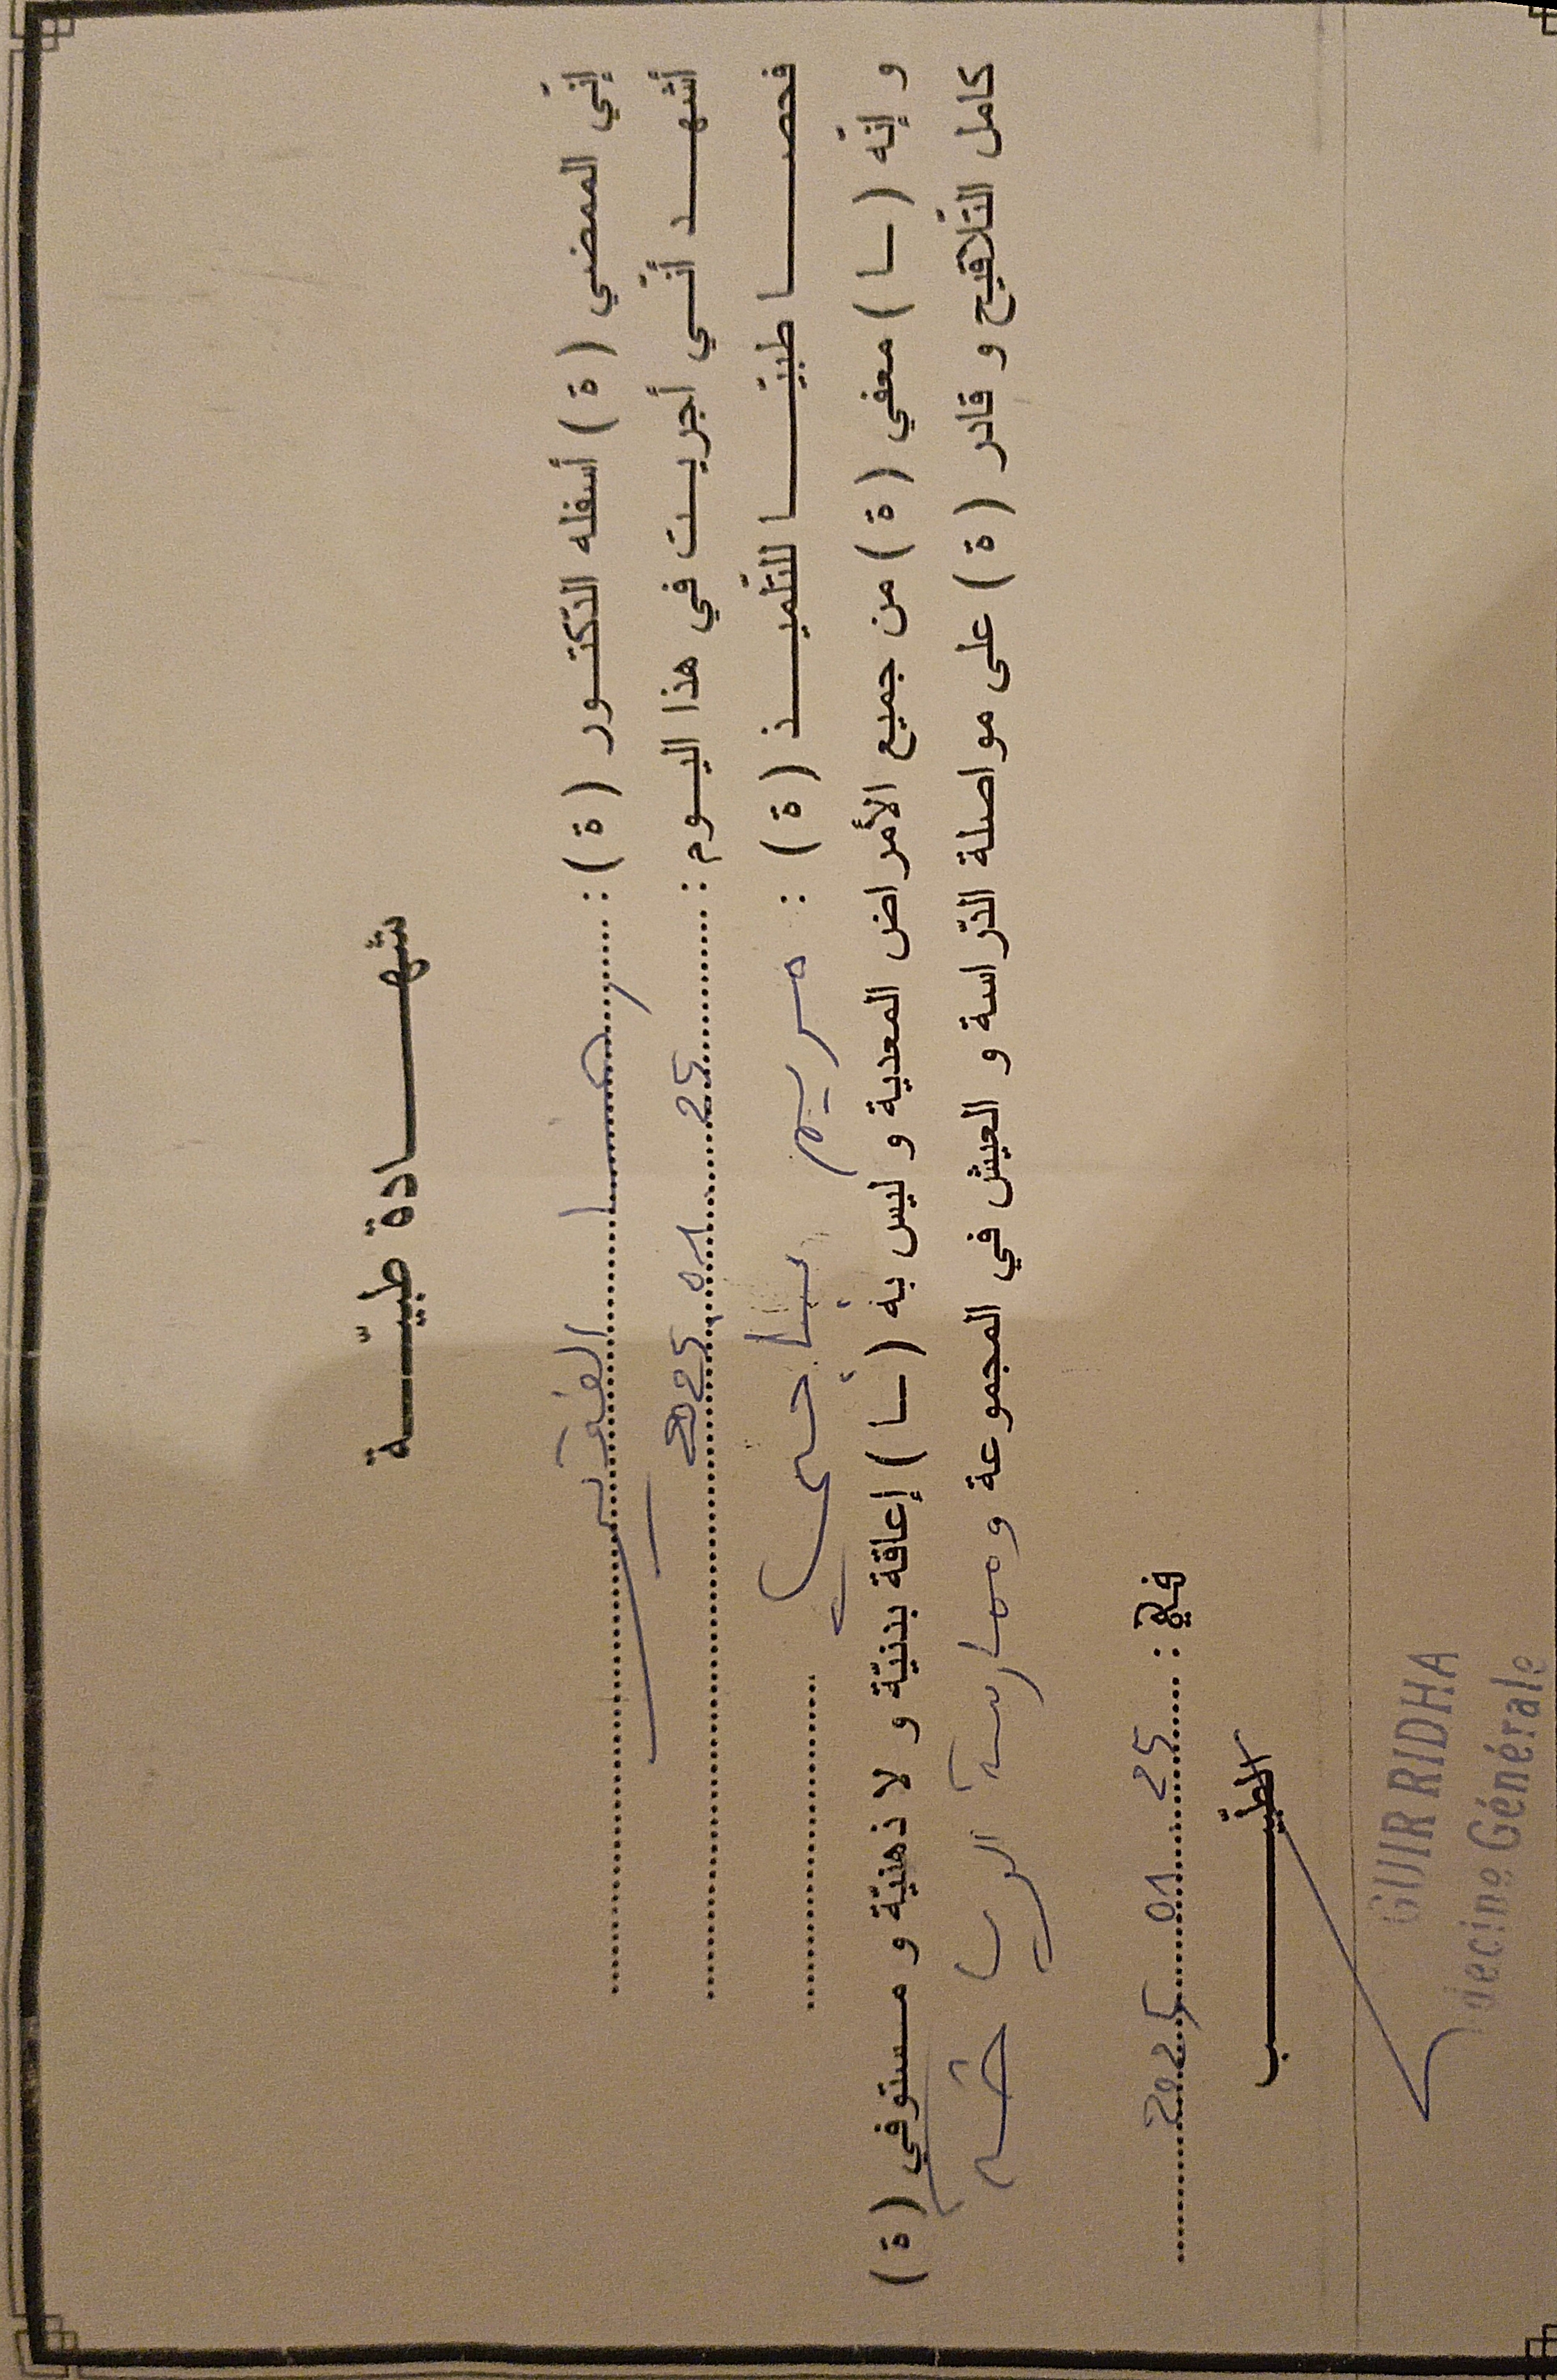 شهادة طبيّة
إنّي الممضي ( ة ) أسفله الدّكتور ( ة ) : رضا
أشهد أنّي أجريت في هذا اليوم : 25 01 2025
فحصا طبيّا للتّلميذ ( ة ) : مريم
و إنّه ( ـا ) معفي ( ة ) من جميع الأمراض المعدية و ليس به ( ـا ) إعاقة بدنيّة و لا ذهنيّة و مستوفي ( ة )
كامل التّلاقيح و قادر ( ة ) على مواصلة الدّراسة و العيش في المجموعة و ممارسة الرياضة
في : 25 01 2025
الطّبيب
GUIR RIDHA
decine Générale